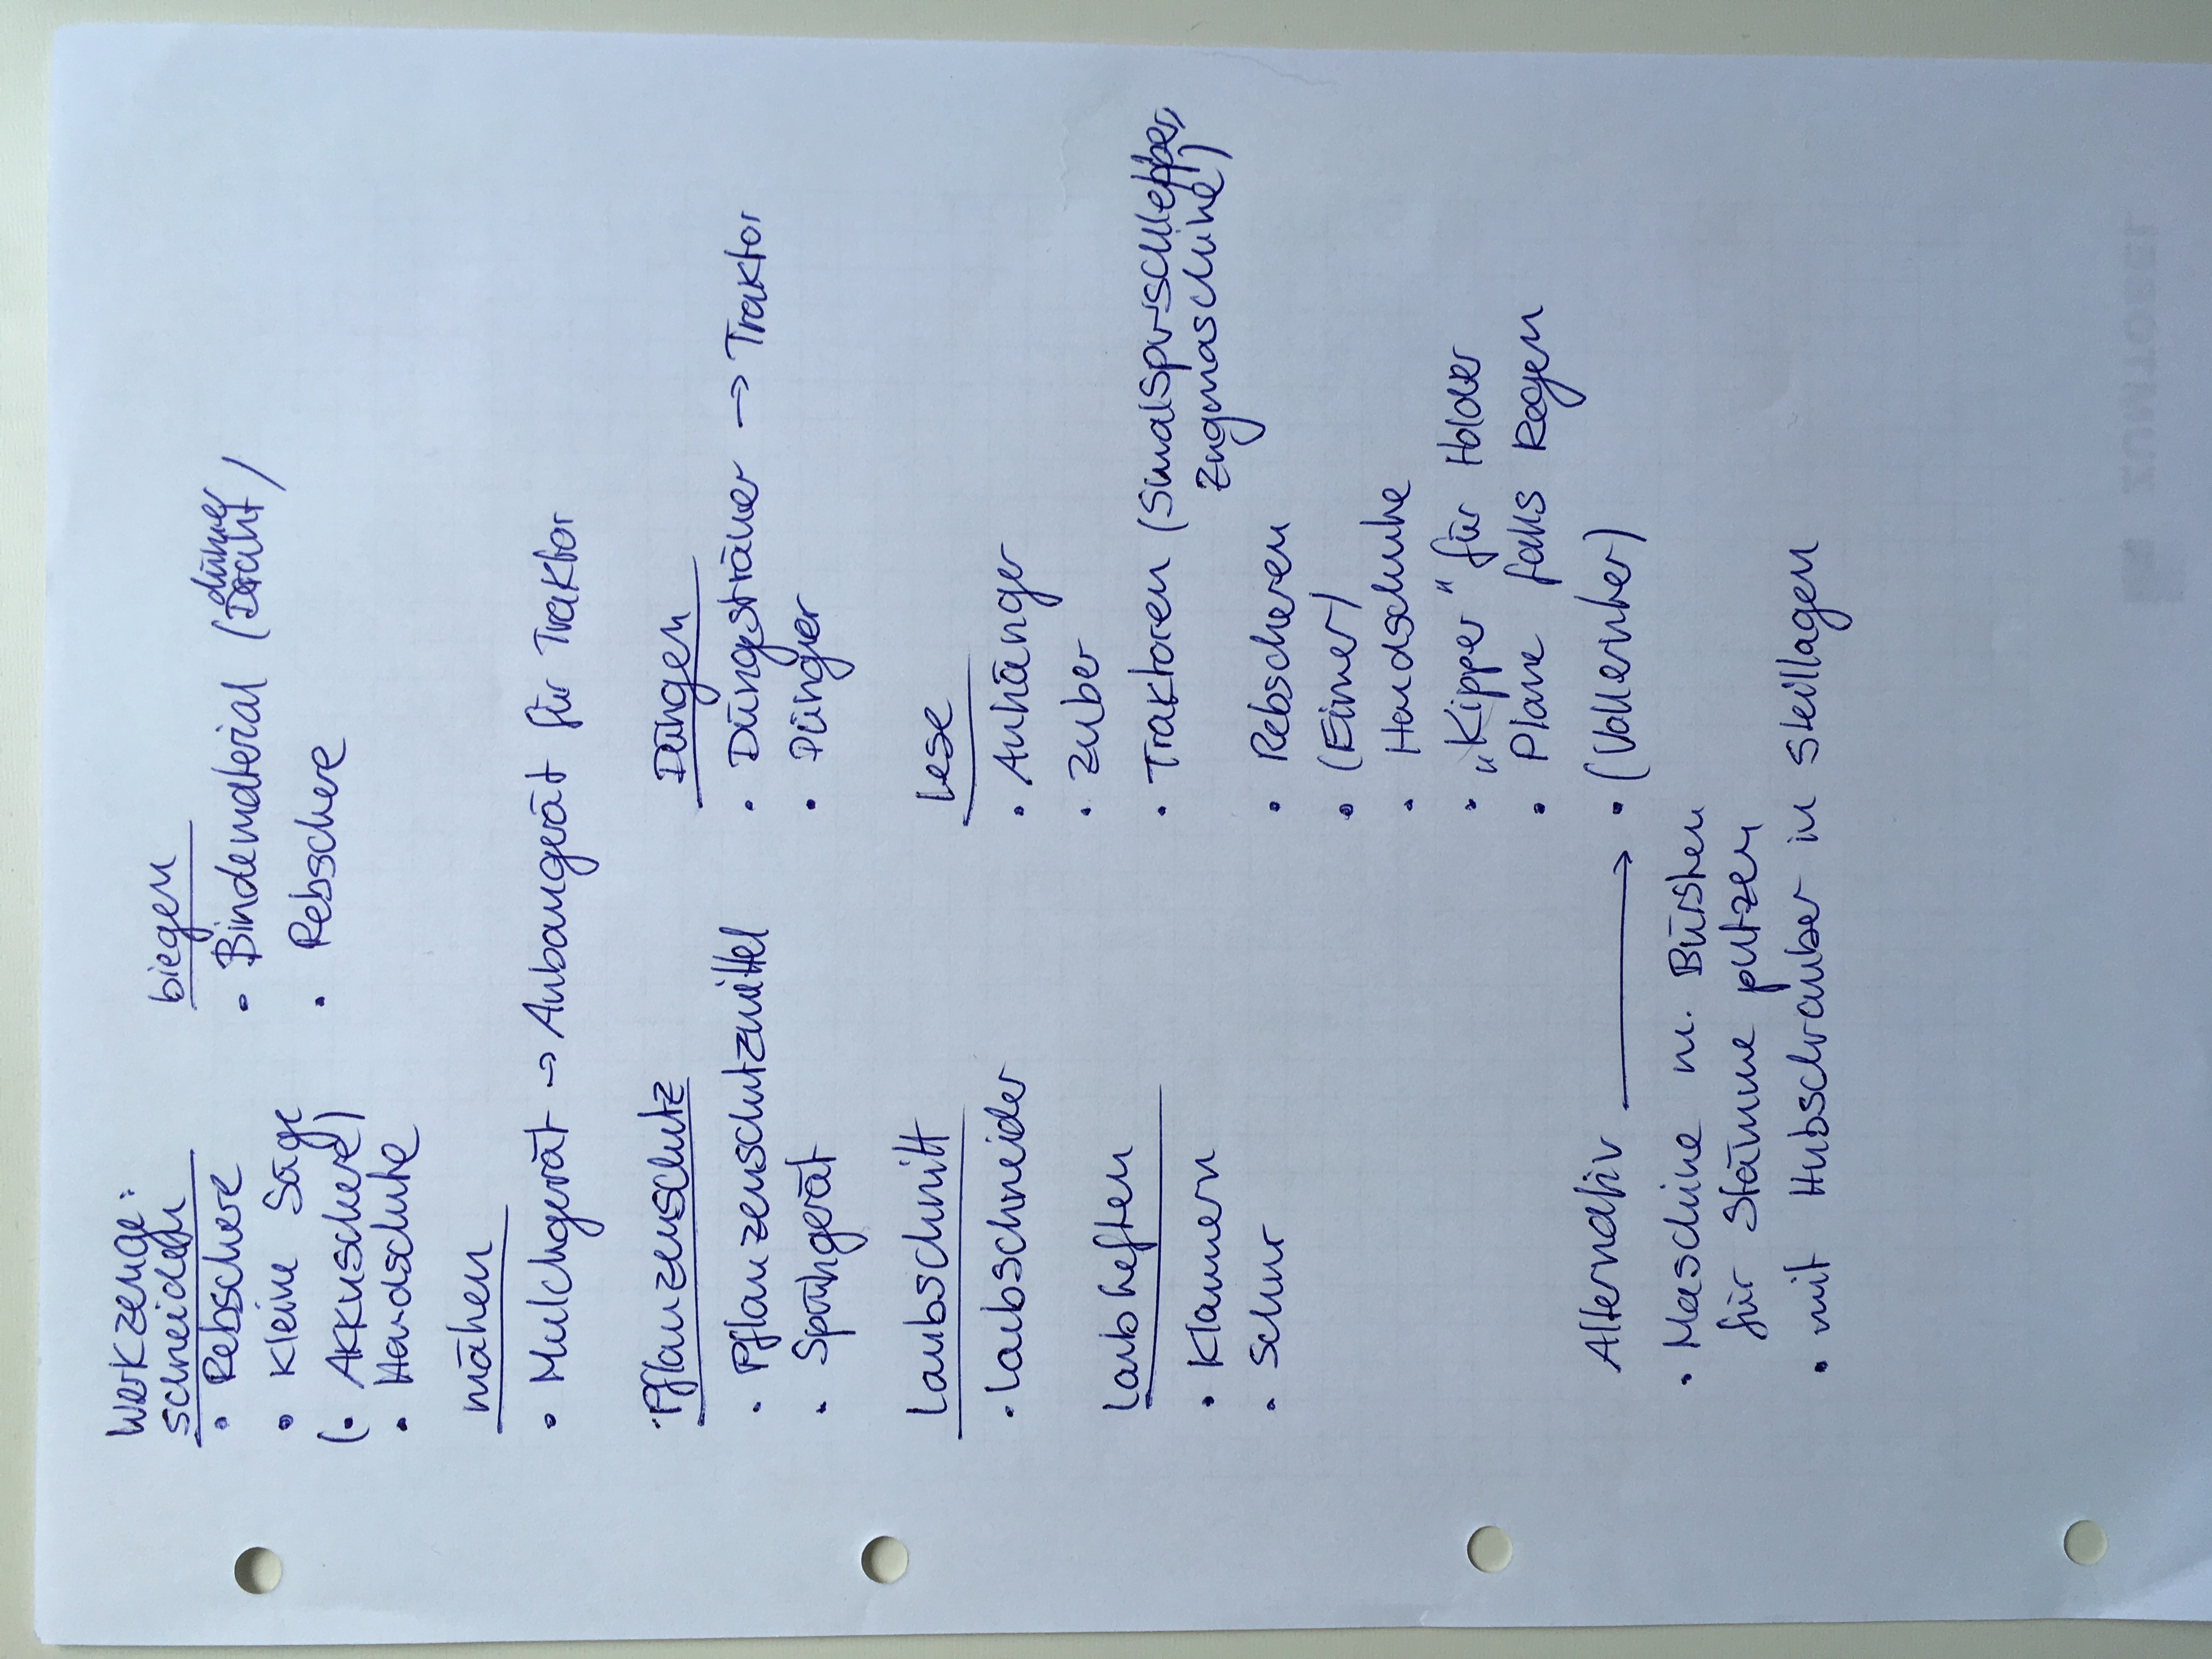 Werkzeuge:
schneiden
• Rebschere
• kleine Säge
(• Akkuschere)
• Handschuhe
biegen
• Bindematerial (dünner Draht)
• Rebschere
mähen
• Mulchgerät → Anbaugerät für Traktor
Pflanzenschutz
• Pflanzenschutzmittel
• Sprühgerät
Düngen
• Düngesträuer → Traktor
• Dünger
Laubschnitt
• Laubschneider
Laubheften
• Klammern
• Schnur
Lese
• Anhänger
• Zuber
• Traktoren (Smalspurschlepper,
Zugmaschine)
• Rebscheren
• (Eimer)
• Handschuhe
• „Kipper" für Holder
• Plane falls Regen
Alternativ → • (Vollernter)
• Maschine m. Bürsten
für Stämme putzen
• mit Hubschrauber in Steillagen